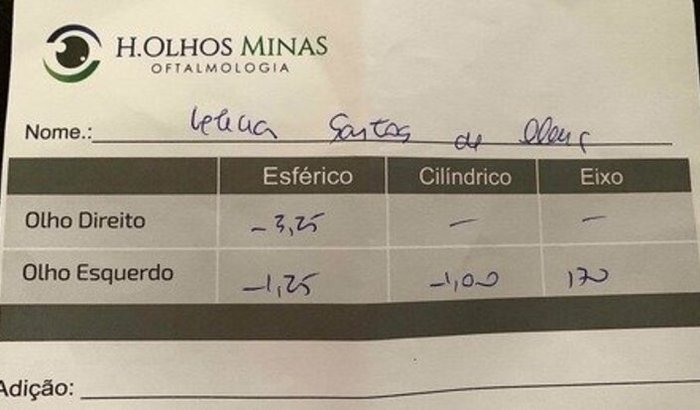 H.OLHOS MINAS
OFTALMOLOGIA
Nome.: Santos de
Esférico Cilíndrico Eixo
Olho Direito -3,25 - -
Olho Esquerdo -1,25 -1,00 170
Adição: